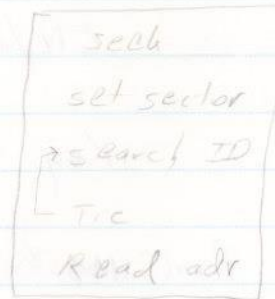 seek
set sector
search ID
TIC
Read adr